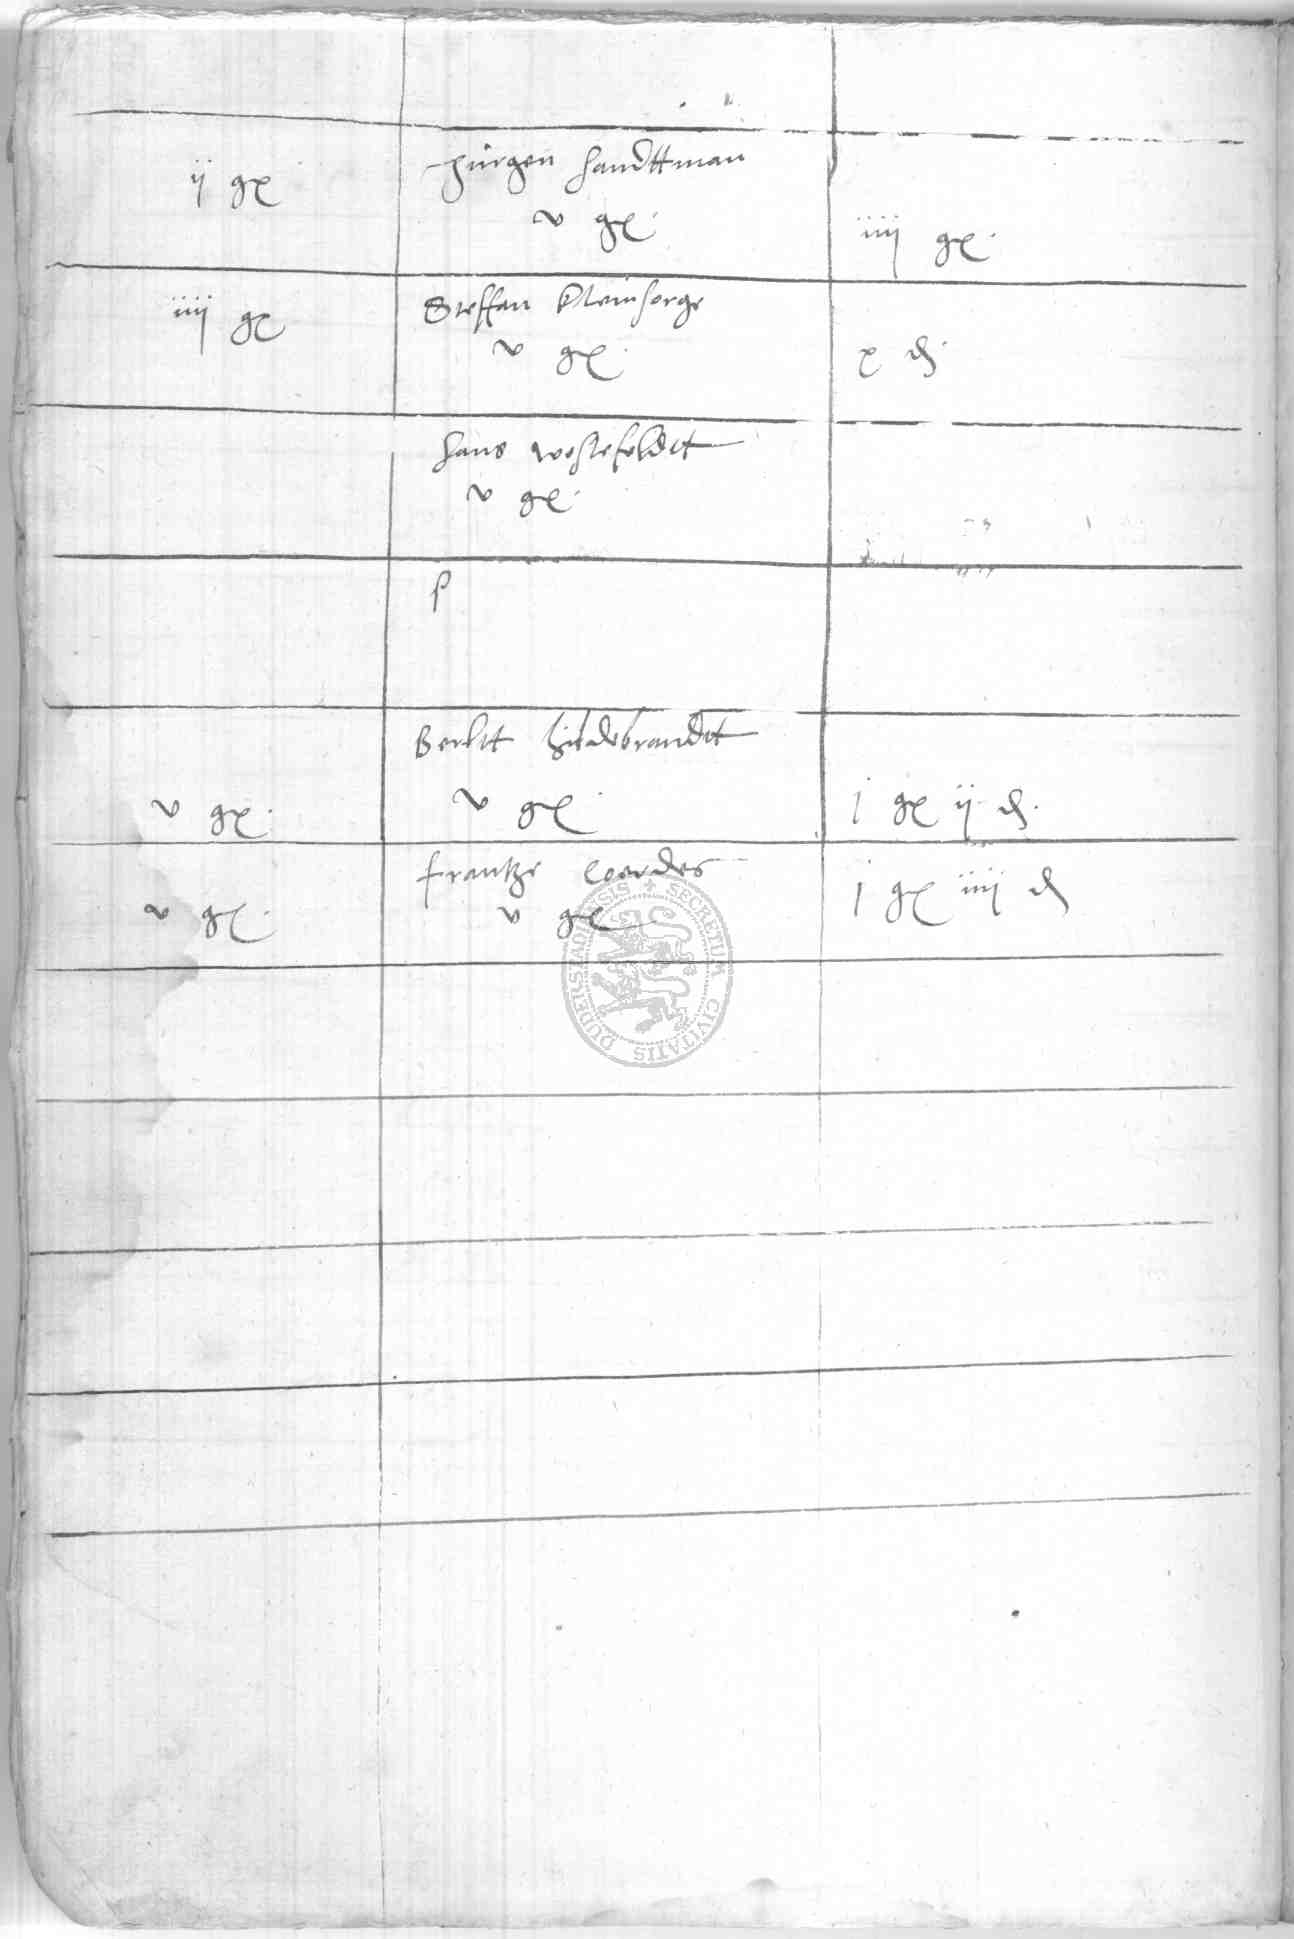 Jurgen Handttman
ij gr
v gr
iiij gr
Steffan Kleinsorge
iiij gr
v gr
x d
Hans Westefeldtt
v gr
Bertltt Hildebrandtt
v gr
v gr
j gr ij d
Frantze Coerdes
v gr
v gr
j gr iiij d
SECRETUM CIVITATIS DUDERSTADIENSIS